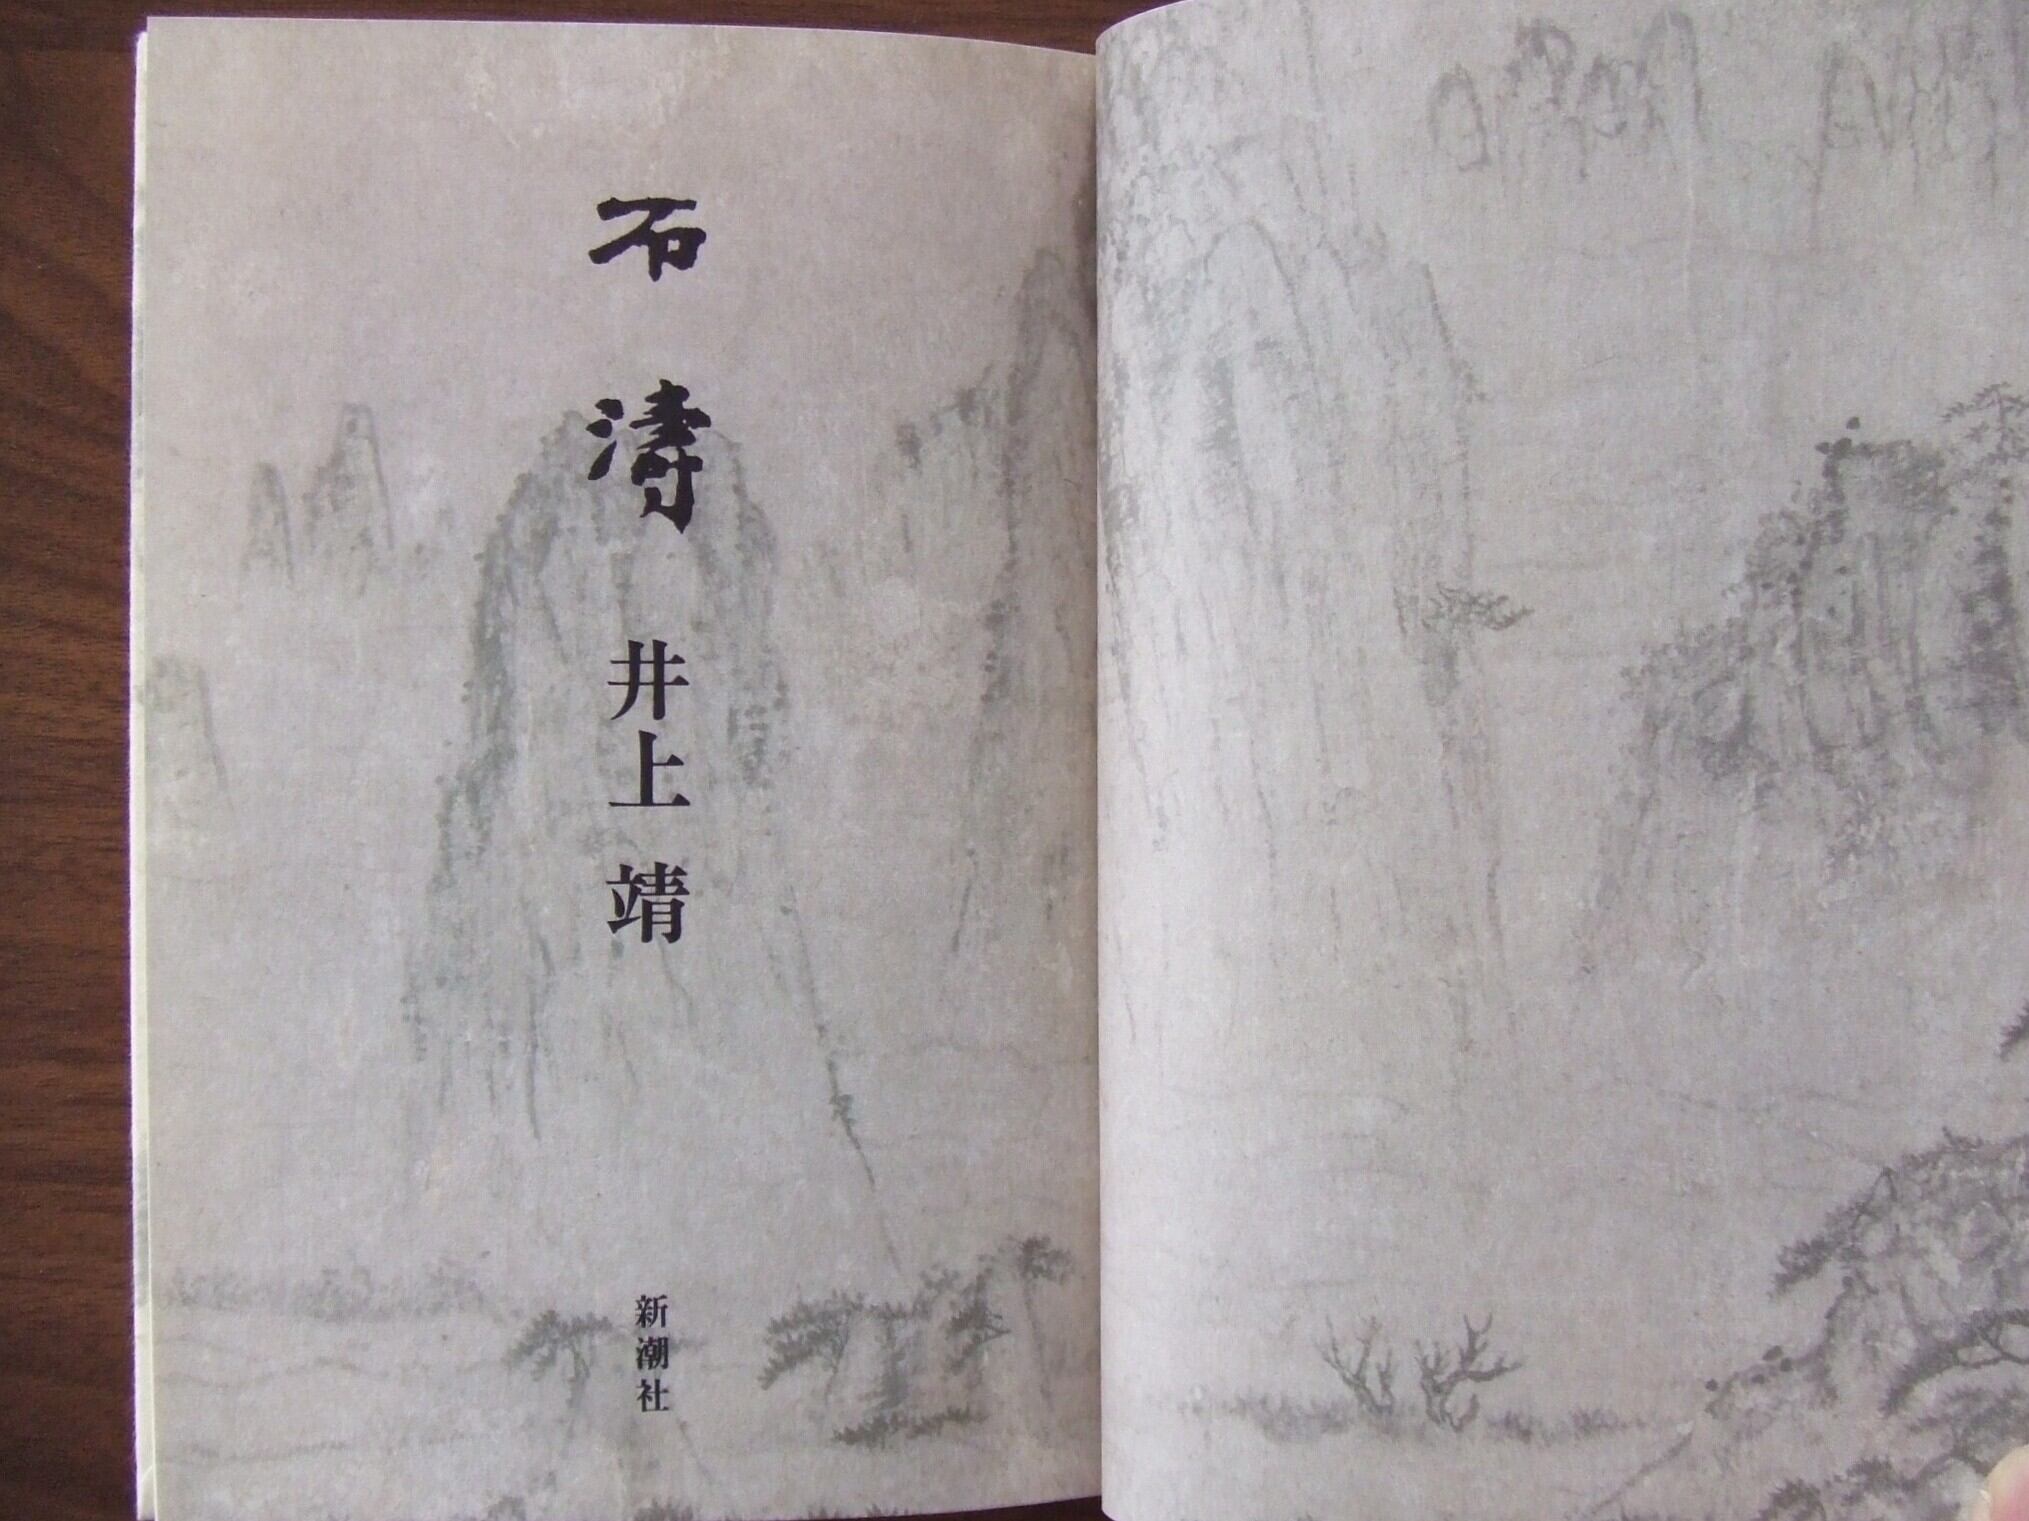 石濤
井上靖
新潮社